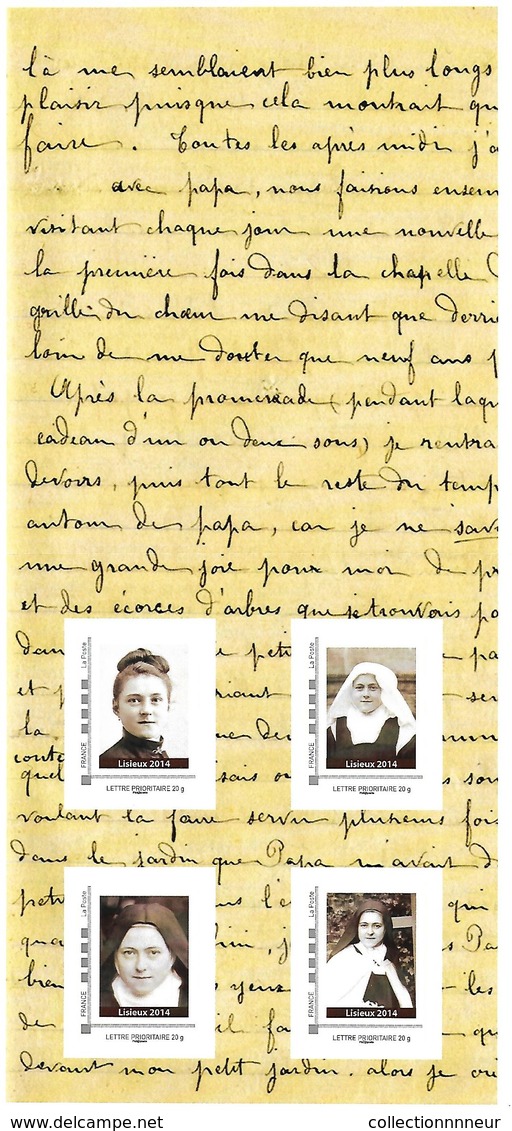 là me semblaient bien plus longs
plaisir puisque cela montrait qu
faire. Toutes les après midi j'a
avec papa, nous faisions ensem
visitant chaque jour une nouvelle
la première fois dans la chapelle
grille du chœur me disant que derri
loin de me douter que neuf ans p
Après la promenade (pendant laqu
cadeau d'un ou deux sous) je rentra
devoirs, puis tout le reste du temp
autour de papa, car je ne sav
une grande joie pour moi de pr
et des écorces d'arbres que je trouvais pa
dan petit pa
et p riant ser
la
conte
quel sais ou son
voulant la faire servir plusieurs fois
dans le jardin que Papa m'avait d
petit l'e qui
qua in, j s Pa
bien yeux les
de il fa qu
devant mon petit jardin. alors je
La Poste
FRANCE
Lisieux 2014
LETTRE PRIORITAIRE 20 g
Philaposte
La Poste
FRANCE
Lisieux 2014
LETTRE PRIORITAIRE 20 g
Philaposte
La Poste
FRANCE
Lisieux 2014
LETTRE PRIORITAIRE 20 g
Philaposte
La Poste
FRANCE
Lisieux 2014
LETTRE PRIORITAIRE 20 g
Philaposte
collectionnneur